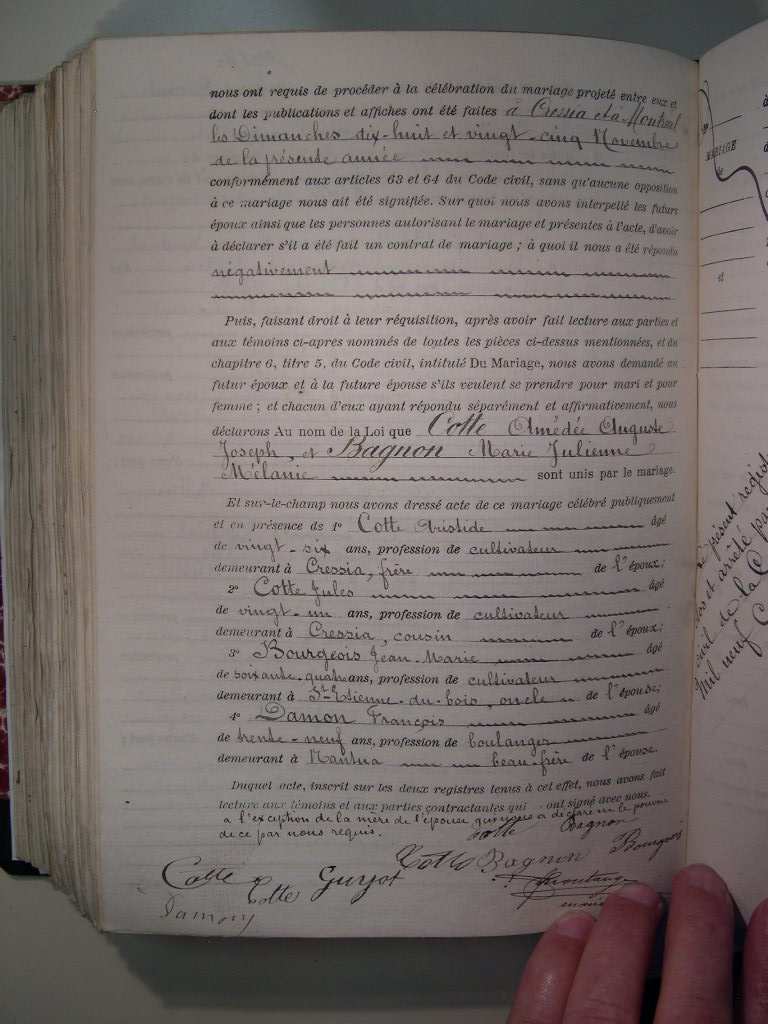 nous ont requis de procéder à la célébration du mariage projeté entre eux et
dont les publications et affiches ont été faites à Cressia et à
les Dimanches dix-huit et vingt-cinq Novembre
de la présente année
conformément aux articles 63 et 64 du Code civil, sans qu'aucune opposition
à ce mariage nous ait été signifiée. Sur quoi nous avons interpellé les futurs
époux ainsi que les personnes autorisant le mariage et présentes à l'acte, d'avoir
à déclarer s'il a été fait un contrat de mariage ; à quoi il nous a été répondu
négativement
Puis, faisant droit à leur réquisition, après avoir fait lecture aux parties et
aux témoins ci-apres nommés de toutes les pièces ci-dessus mentionnées, et du
chapitre 6, titre 5, du Code civil, intitulé Du Mariage, nous avons demandé au
futur époux et à la future épouse s'ils veulent se prendre pour mari et pour
femme ; et chacun d'eux ayant répondu séparément et affirmativement, nous
déclarons Au nom de la Loi que Cotte Amédée Auguste
Joseph, et Bagnon Marie Julienne
Mélanie sont unis par le mariage.
Et sur-le-champ nous avons dressé acte de ce mariage célébré publiquement
et en présence de 1º Cotte Aristide âgé
de vingt-six ans, profession de cultivateur
demeurant à Cressia, frère de l'époux;
2º Cotte Jules âgé
de vingt-un ans, profession de cultivateur
demeurant à Cressia, cousin de l'époux;
3º Bourgeois Jean-Marie âgé
de soixante-quatre ans, profession de cultivateur
demeurant à St-Etienne-du-bois, oncle de l'épouse;
4º Damon François âgé
de trente-neuf ans, profession de boulanger
demeurant à Nantua beau-frère de l'épouse.
Duquel acte, inscrit sur les deux registres tenus à cet effet, nous avons fait
lecture aux témoins et aux parties contractantes qui ont signé avec nous
a l'exception de la mère de l'épouse qui a déclaré ne le pouvoir
de ce par nous requis. Cotte Bagnon
Cotte Bagnon Bourgeois
Cotte Cotte Guyot
Damon
MARIAGE
de
et
présent regist
et arrêté par
civil de la C
Mil neuf